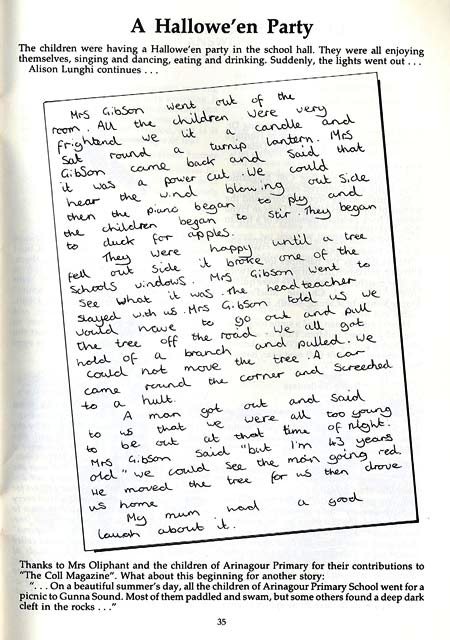 A Hallowe'en Party
The children were having a Hallowe'en party in the school hall. They were all enjoying
themselves, singing and dancing, eating and drinking. Suddenly, the lights went out . . .
Alison Lunghi continues . . .
Mrs Gibson went out of the
room. All the children were very
frightend we lit a candle and
sat round a turnip lantern. Mrs
Gibson came back and said that
it was a power cut. We could
hear the wind blowing out side
then the piano began to play and
the children began to stir. They began
to duck for apples.
They were happy until a tree
fell out side it broke one of the
schools windows. Mrs Gibson went to
see what it was. the headteacher
stayed with us. Mrs Gibson told us we
would have to go out and pull
the tree off the road. we all got
hold of a branch and pulled. we
could not move the tree. A car
came round the corner and screeched
to a hult.
A man got out and said
to us that we were all too young
to be out at that time of night.
Mrs Gibson said "but I'm 43 years
old" we could see the man going red.
He moved the tree for us then drove
us home
My mum had a good
laugh about it.
Thanks to Mrs Oliphant and the children of Arinagour Primary for their contributions to
"The Coll Magazine". What about this beginning for another story:
". . . On a beautiful summer's day, all the children of Arinagour Primary School went for a
picnic to Gunna Sound. Most of them paddled and swam, but some others found a deep dark
cleft in the rocks . . ."
35